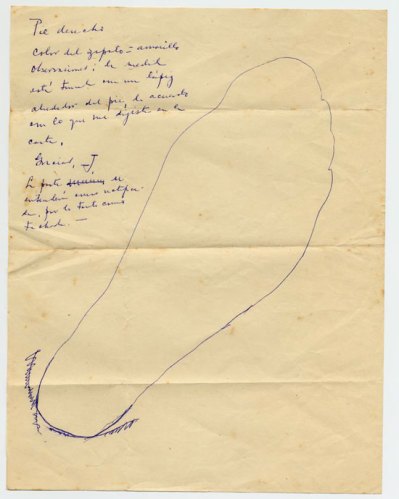 Pie derecho
Color del zapato = amarillo
Observaciones: la medida
está tomada con un lápiz
alrededor del pie de acuerdo
con lo que me dijiste en la
carta.
Gracias, J
La parte
por lo tanto como